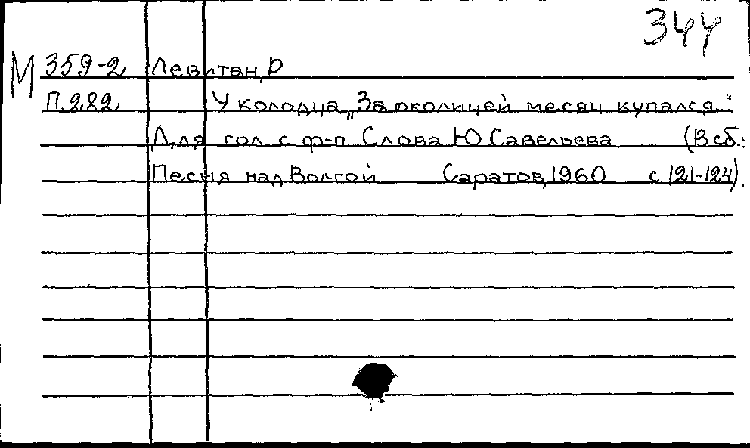 344
М 359-2 Левитан, Р
П.282 У колодца „За околицей месяц купался"
Для гол. с ф-п Слова Ю Савельева (В сб.:
Песня над Волгой Саратов, 1960 с 121-124).